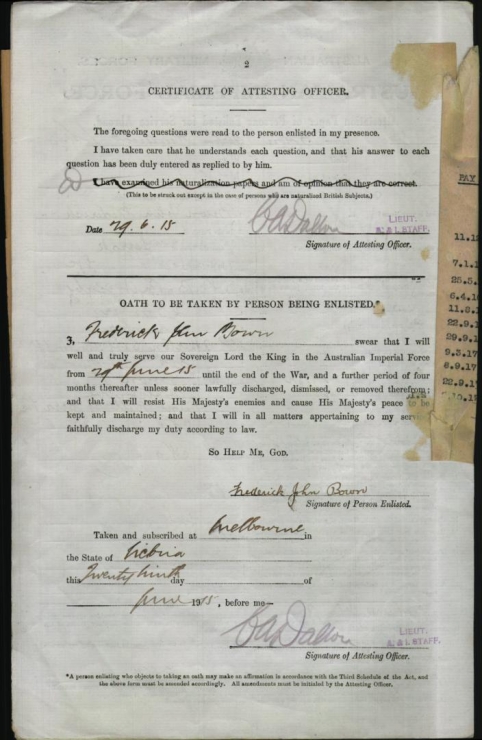 2
CERTIFICATE OF ATTESTING OFFICER.
The foregoing questions were read to the person enlisted in my presence.
I have taken care that he understands each question, and that his answer to each
question has been duly entered as replied to by him.
I have examined his naturalization papers and am of opinion that they are correct.
(This to be struck out except in the case of persons who are naturalised British Subjects.)
Date 29.6.15
LIEUT.
A. & I. STAFF.
Signature of Attesting Officer.
OATH TO BE TAKEN BY PERSON BEING ENLISTED.*
3, Frederick John Bown swear that I will
well and truly serve our Sovereign Lord the King in the Australian Imperial Force
from 29th June 15 until the end of the War, and a further period of four
months thereafter unless sooner lawfully discharged, dismissed, or removed therefrom;
and that I will resist His Majesty's enemies and cause His Majesty's peace to be
kept and maintained; and that I will in all matters appertaining to my service
faithfully discharge my duty according to law.
SO HELP ME, GOD.
Frederick John Bown
Signature of Person Enlisted.
Taken and subscribed at Melbourne in
the State of Victoria
this Twenty Ninth day of
June 1915, before me—
G A Dalton
LIEUT.
A. & I. STAFF.
Signature of Attesting Officer.
*A person enlisting who objects to taking an oath may make an affirmation in accordance with the Third Schedule of the Act, and
the above form must be amended accordingly. All amendments must be initialed by the Attesting Officer.
PAY
11.1
7.1.1
25.5.
6.4.1
11.8.
22.9.1
29.9.1
9.3.17
6.9.17
22.9.1